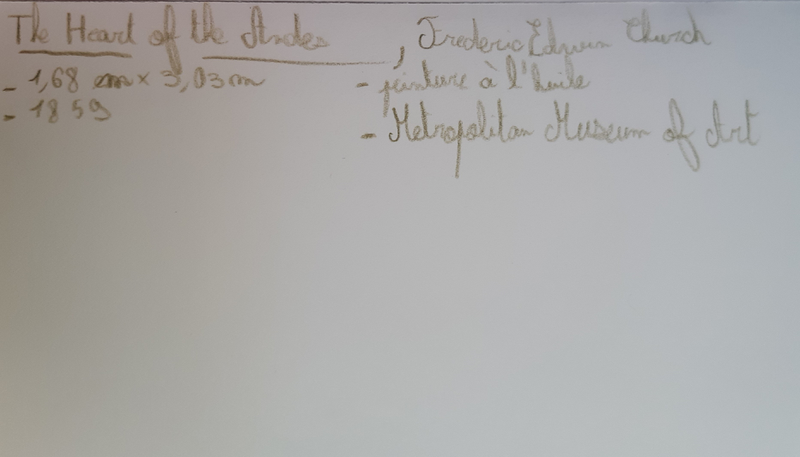 The Heart of the Andes, Frederic Edwin Church
- 1,68 m × 3,03 m - peinture à l'huile
- 1859 - Metropolitan Museum of Art